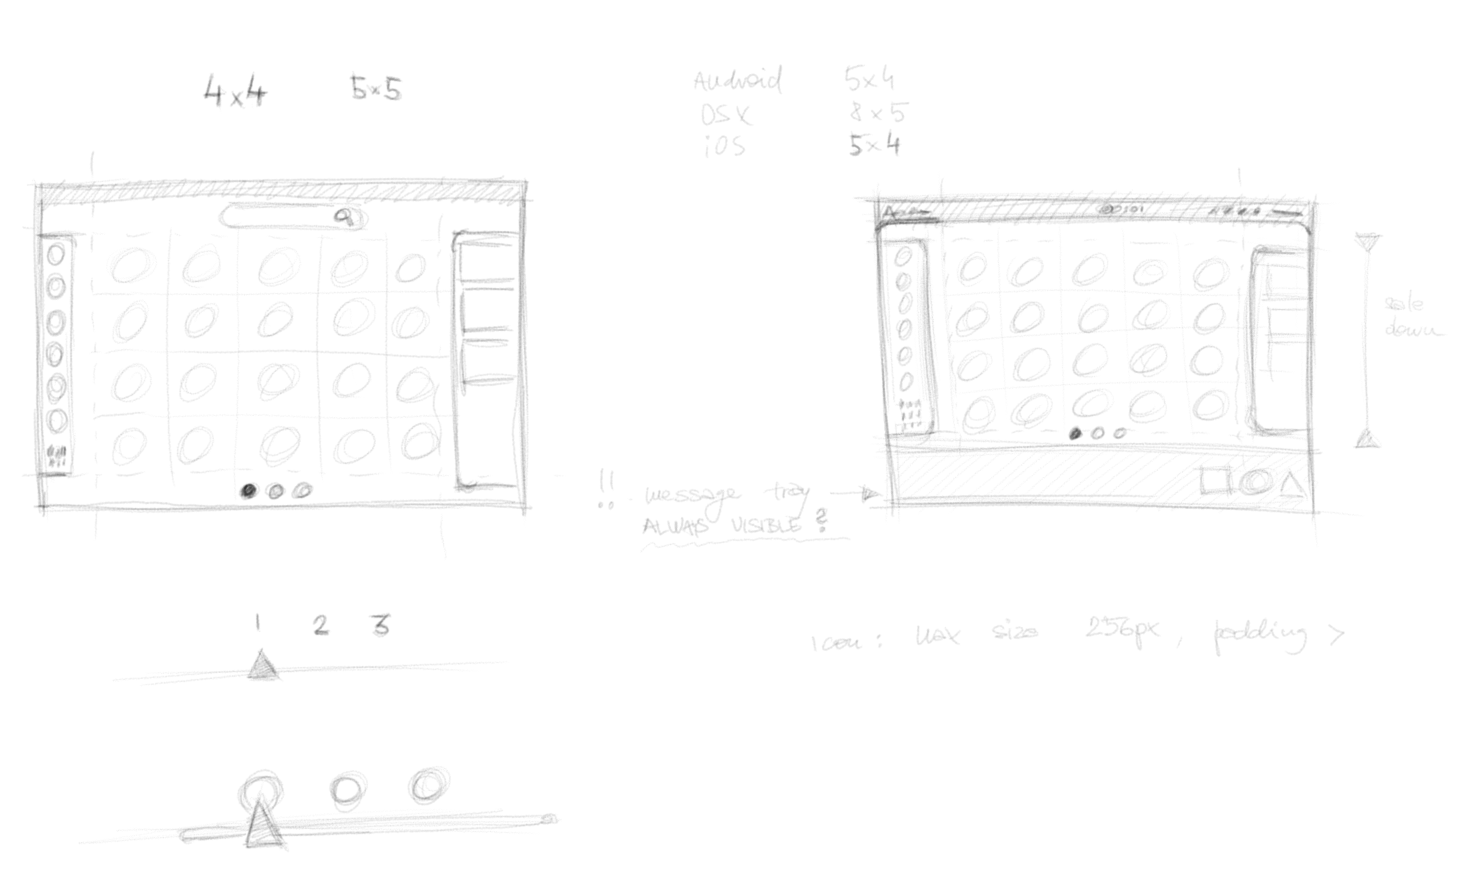 4x4 5x5
Android 5x4
OSX 8x5
iOS 5x4
scale
down
!! message tray
ALWAYS VISIBLE?
1 2 3
icon: max size 256px, padding >